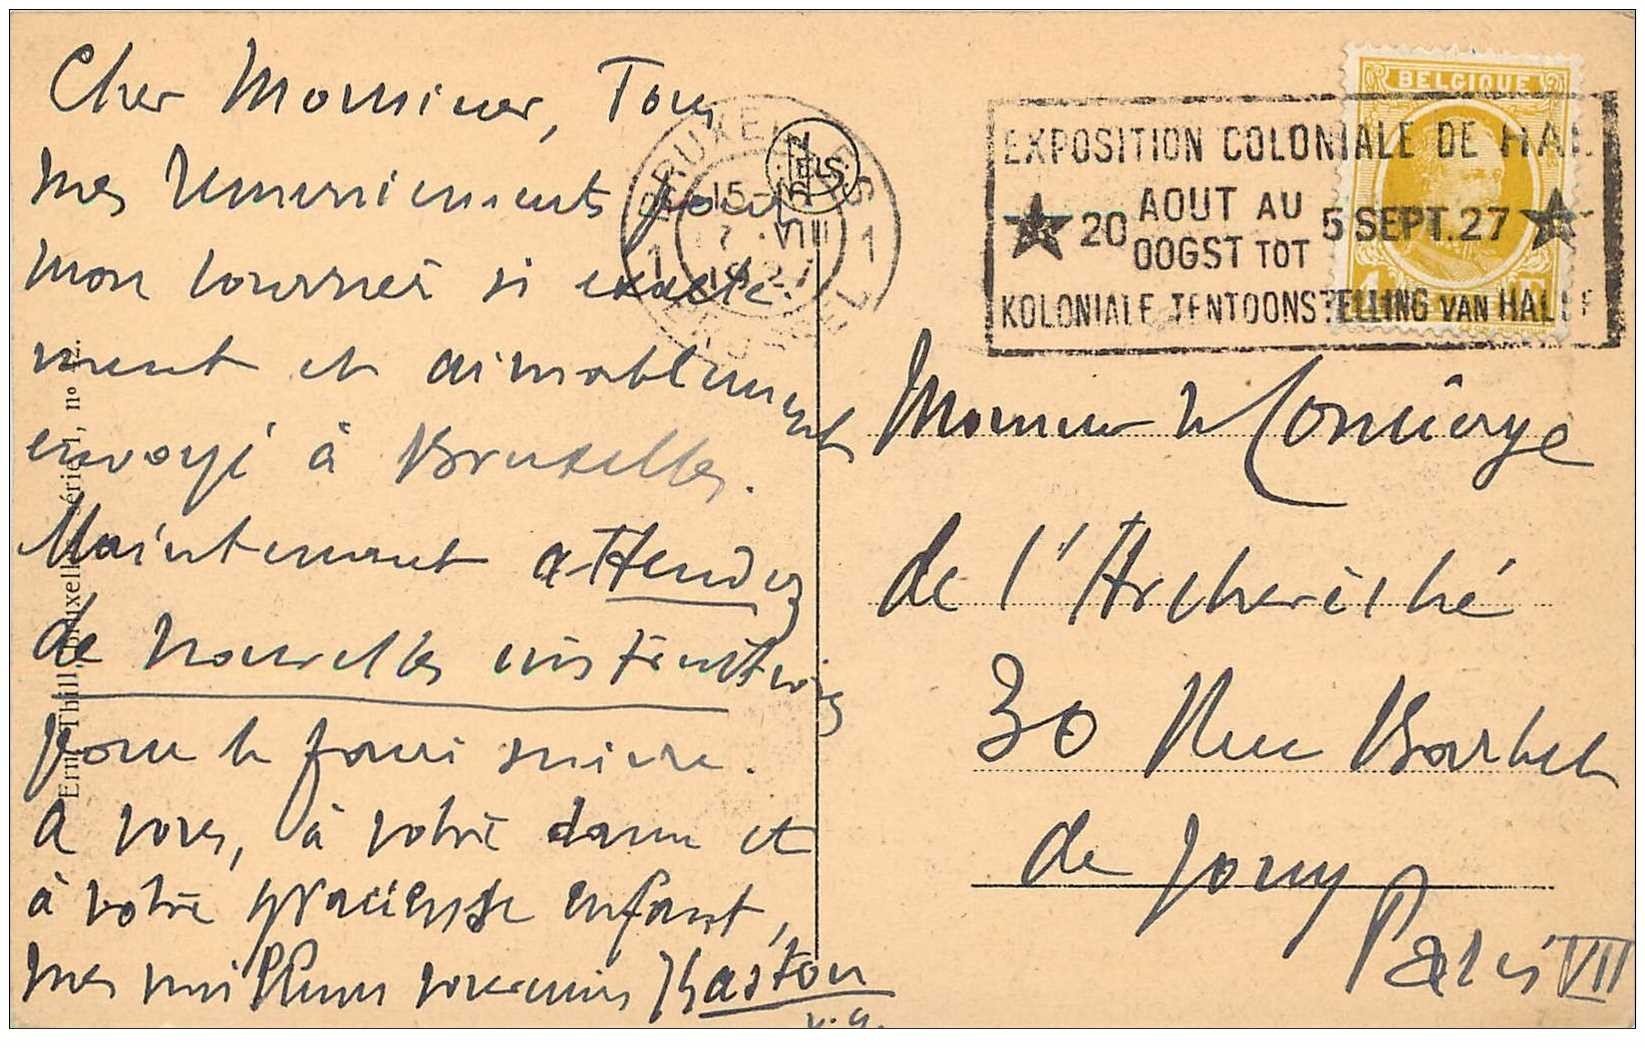 Cher Monsieur, Tous
mes remerciements pour
mon courrier si exacte-
ment et aimablement
envoyé à Bruxelles.
Maintenant attendez
de nouvelles instructions
pour le faire suivre.
A vous, à votre dame et
à votre gracieuse enfant,
mes meilleurs souvenirs
v.g.
Ern. Thill, Bruxelles série 1, no
NELS
BRUXELLES
1 15-16 1
7 VIII
1927
BRUSSEL
BELGIQUE
EXPOSITION COLONIALE DE HAL
20 AOUT AU 5 SEPT. 27
OOGST TOT
KOLONIALE TENTOONSTELLING VAN HALLE
Monsieur le Concierge
de l'Archevêché
30 Rue Barbet
de Jouy
Paris VII